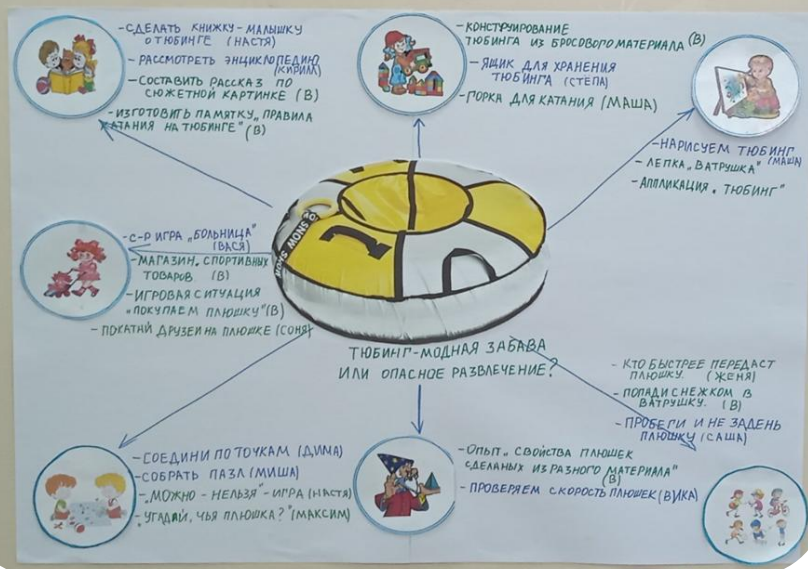 -СДЕЛАТЬ КНИЖКУ-МАЛЫШКУ
О ТЮБИНГЕ (НАСТЯ)
-РАССМОТРЕТЬ ЭНЦИКЛОПЕДИЮ
(КИРИЛЛ)
-СОСТАВИТЬ РАССКАЗ ПО
СЮЖЕТНОЙ КАРТИНКЕ (В)
-ИЗГОТОВИТЬ ПАМЯТКУ „ПРАВИЛА
КАТАНИЯ НА ТЮБИНГЕ" (В)
-КОНСТРУИРОВАНИЕ
ТЮБИНГА ИЗ БРОСОВОГО МАТЕРИАЛА (В)
-ЯЩИК ДЛЯ ХРАНЕНИЯ
ТЮБИНГА (СТЁПА)
-ГОРКА ДЛЯ КАТАНИЯ (МАША)
-НАРИСУЕМ ТЮБИНГ
(МАША)
-ЛЕПКА „ВАТРУШКА"
-АППЛИКАЦИЯ „ТЮБИНГ"
-С-Р ИГРА „БОЛЬНИЦА"
(ВАСЯ)
-МАГАЗИН „СПОРТИВНЫХ
ТОВАРОВ (В)
-ИГРОВАЯ СИТУАЦИЯ
„ПОКУПАЕМ ПЛЮШКУ" (В)
-ПОКАТАЙ ДРУЗЕЙ НА ПЛЮШКЕ (СОНЯ)
SNOW SHOW
ТЮБИНГ-МОДНАЯ ЗАБАВА
ИЛИ ОПАСНОЕ РАЗВЛЕЧЕНИЕ?
-КТО БЫСТРЕЕ ПЕРЕДАСТ
ПЛЮШКУ. (ЖЕНЯ)
-ПОПАДИ СНЕЖКОМ В
ВАТРУШКУ. (В)
-ПРОБЕГИ И НЕ ЗАДЕНЬ
ПЛЮШКУ (САША)
-СОЕДИНИ ПО ТОЧКАМ (ДИМА)
-СОБРАТЬ ПАЗЛ (МИША)
-„МОЖНО-НЕЛЬЗЯ"-ИГРА (НАСТЯ)
-„УГАДАЙ, ЧЬЯ ПЛЮШКА?" (МАКСИМ)
-ОПЫТ „СВОЙСТВА ПЛЮШЕК
СДЕЛАНЫХ ИЗ РАЗНОГО МАТЕРИАЛА"
(В)
-ПРОВЕРЯЕМ СКОРОСТЬ ПЛЮШЕК (ВИКА)